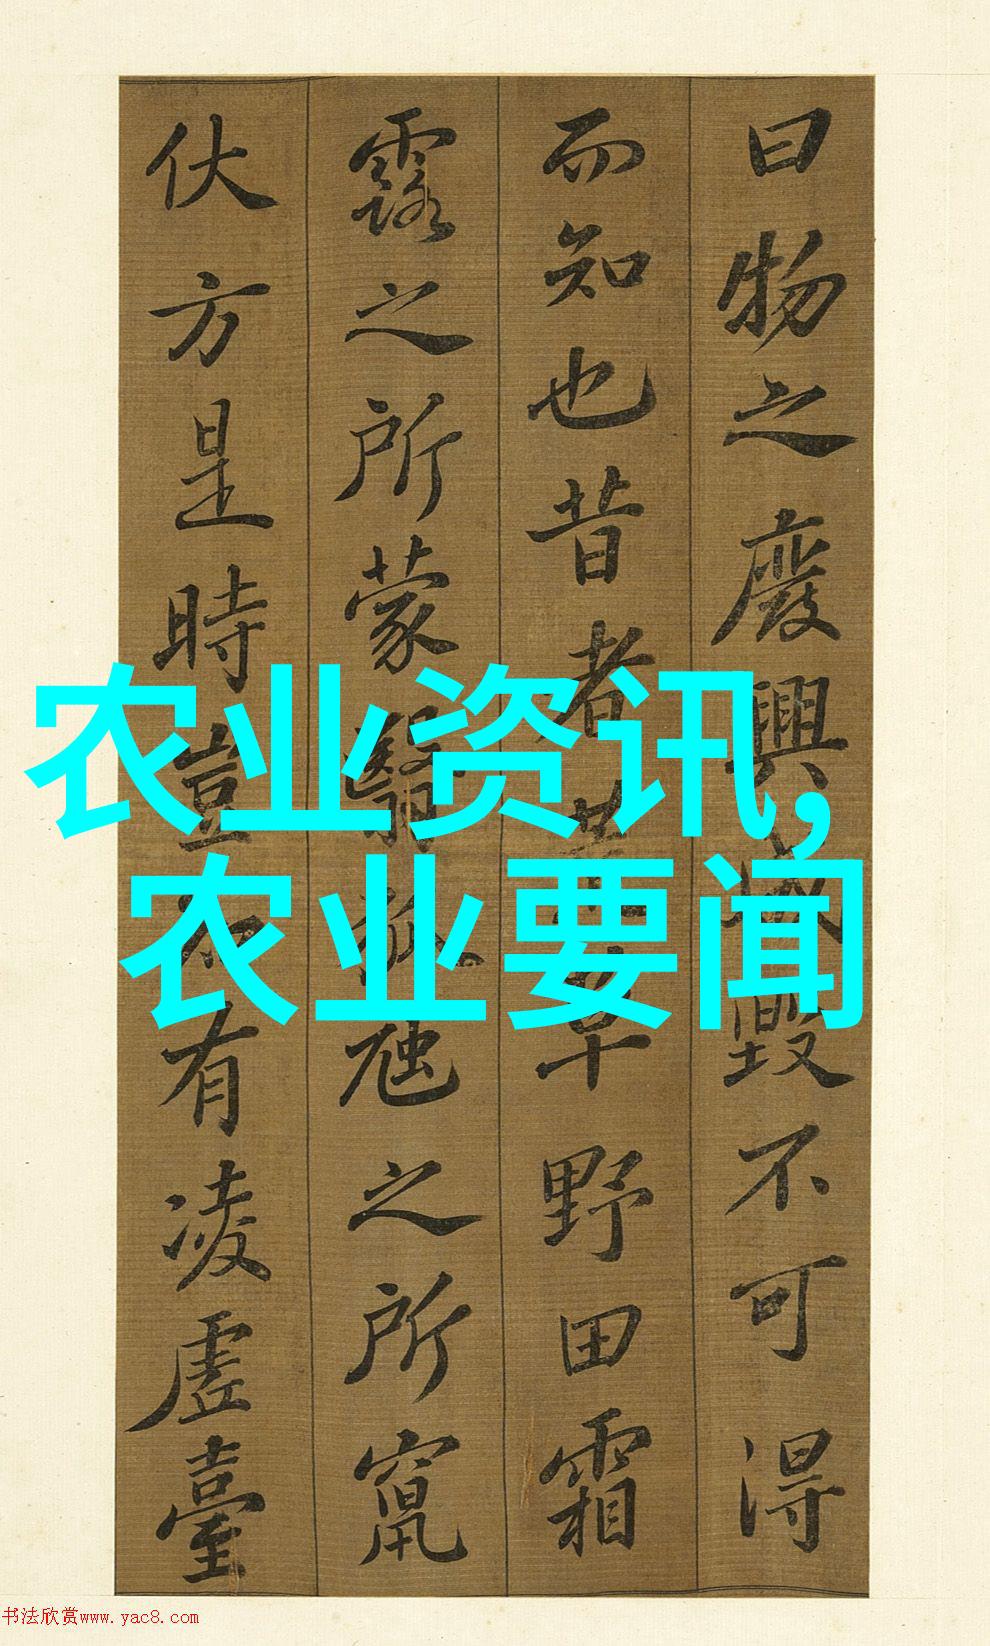 曰物之廢興成毀不可得
而知也昔者荒草野田霜
露之所蒙翳狐虺之所竄
伏方是時豈有凌虛臺
农业资讯,
农业要闻
书法欣赏www.yac8.com